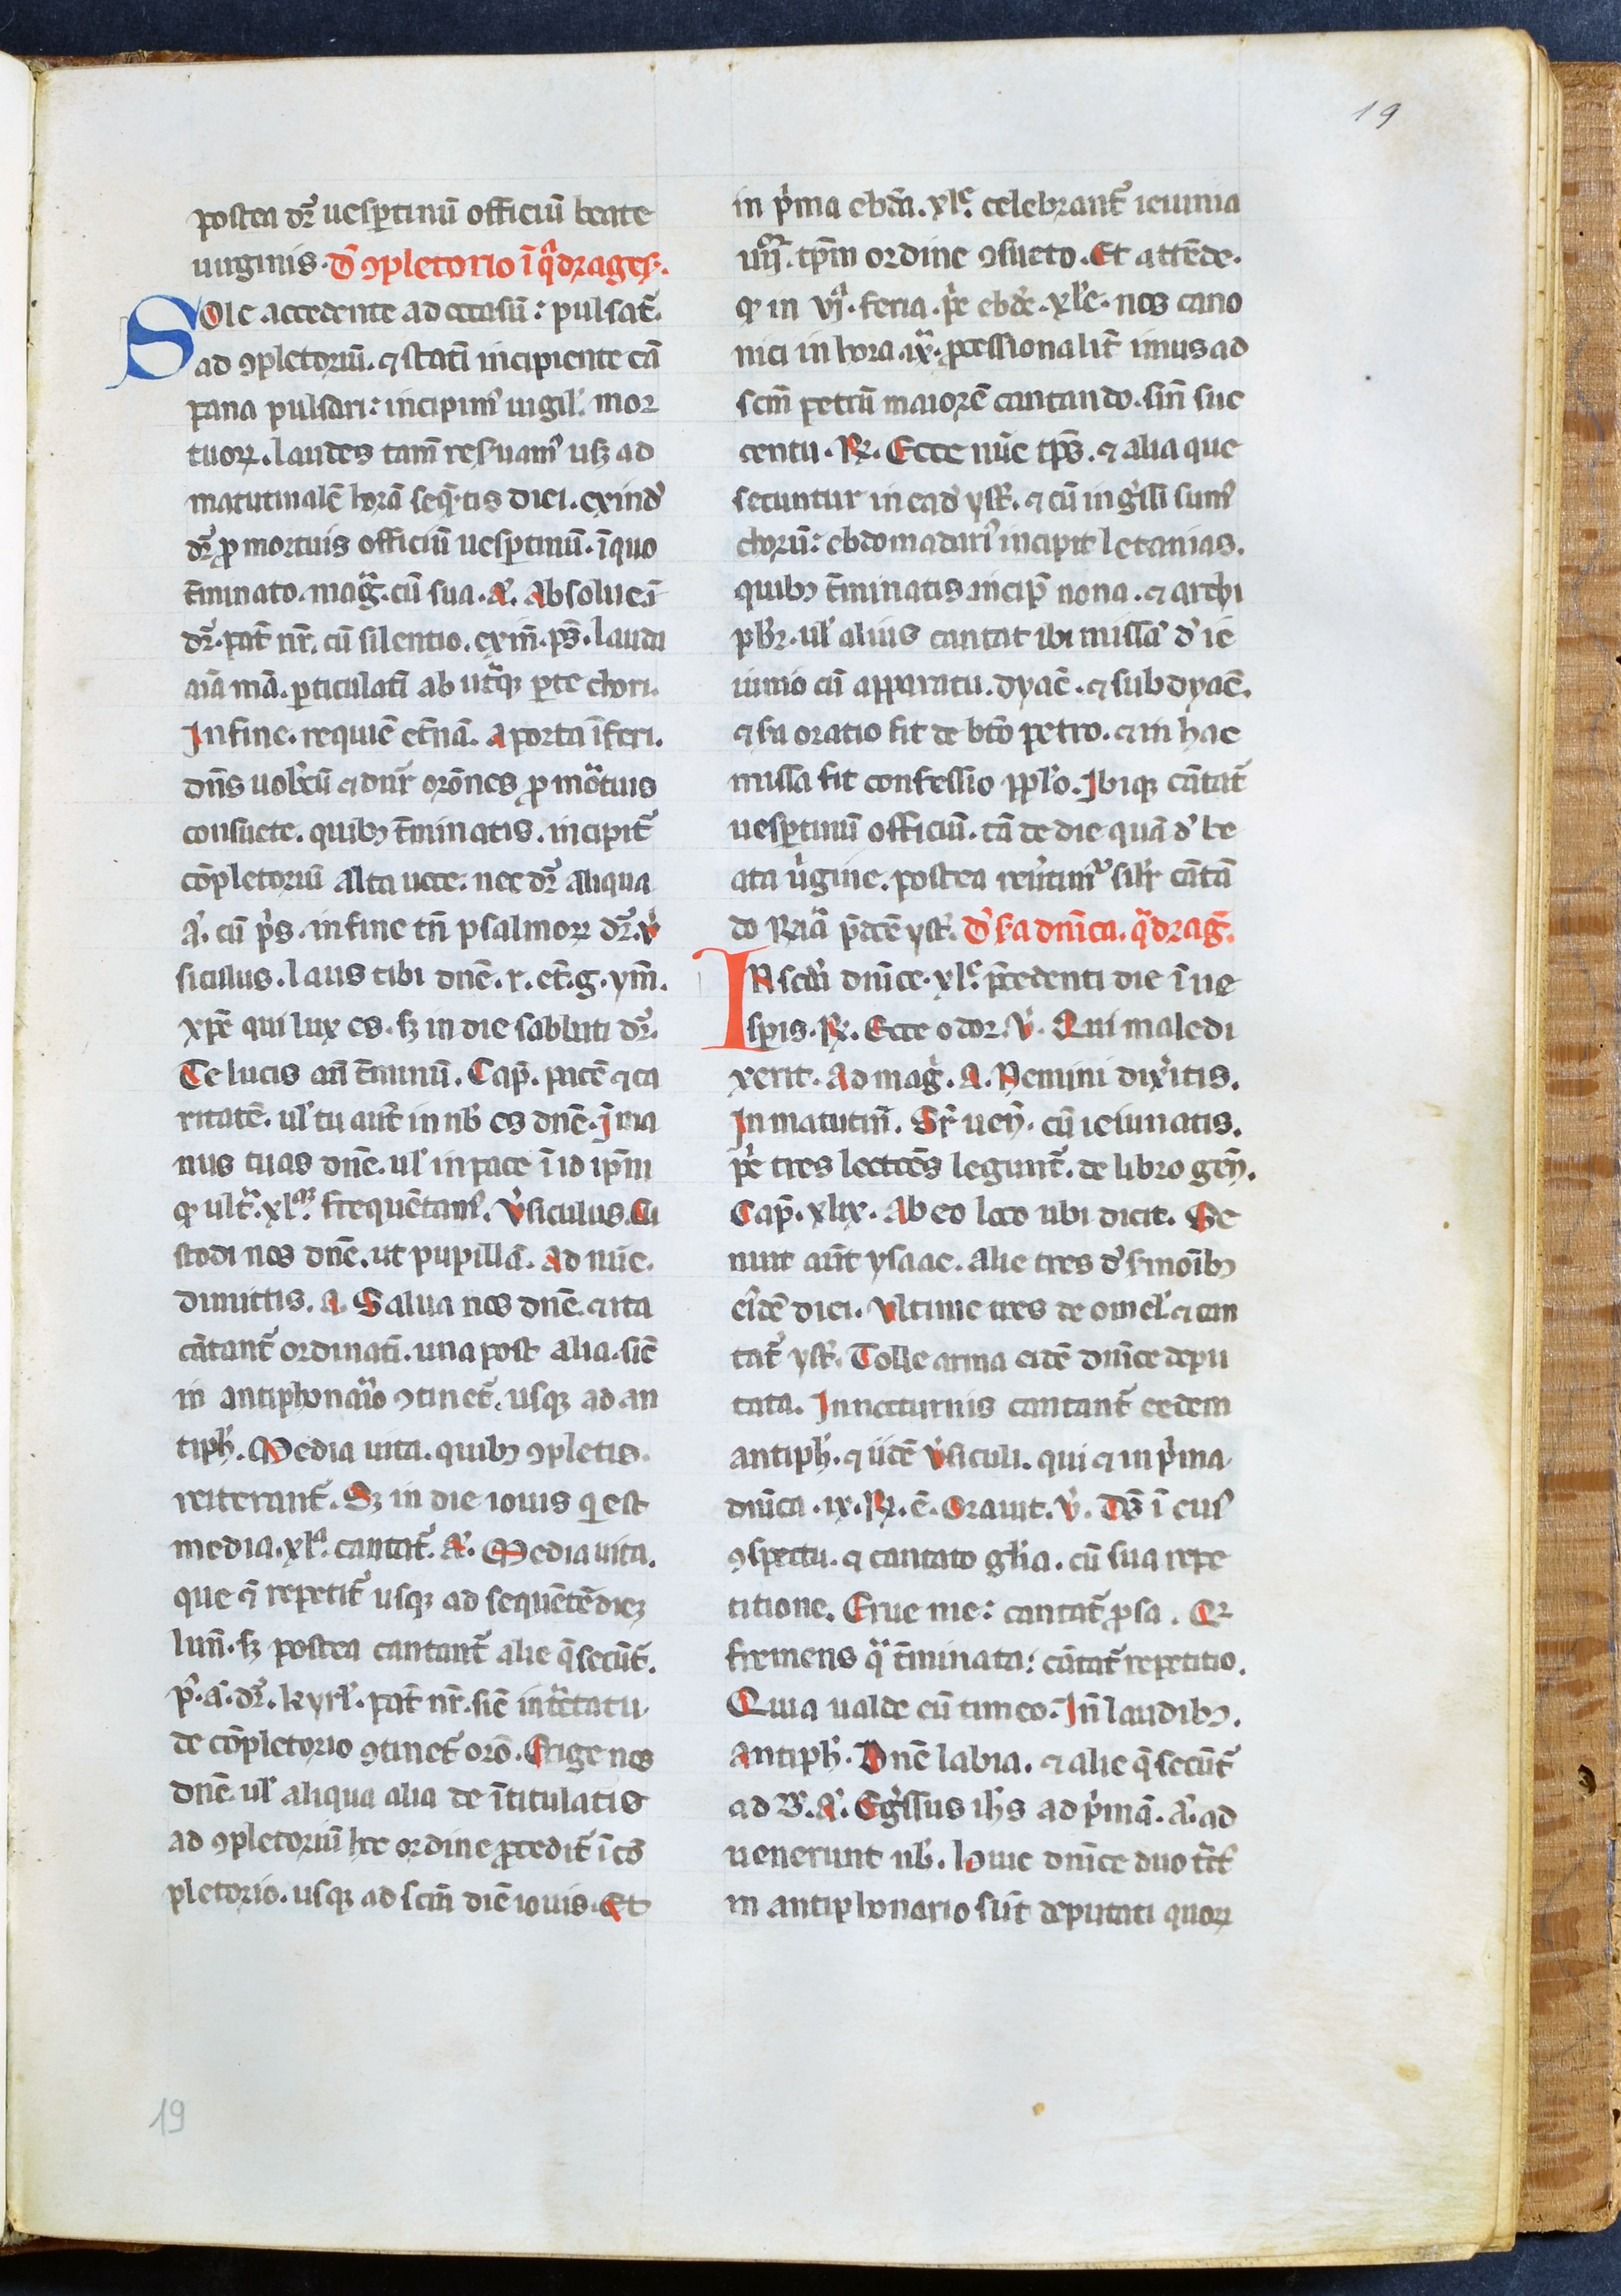 19
postea dr̄ uesp̱tinū officiū beate
uirginis. D̉ ꝯpletorio ī q̉dragesͥ.
Sole accedente ad occasū: pulsat᷑.
ad ꝯpletoriū. ⁊ statī incipiente cā
pana pulsari: incipim᷒ uigil᷒. mor
tuoꝝ. laudes tam̄ res̉uam᷒ usꝫ ad
matutinalē horā seq̄ntis diei. exind̉
dr̄ ꝓ mortuis officiū uesp̱tinū. ī quo
t̄minato. magͣ. cū sua. a͛. Absolue. ⁊
dr̄. pat̄ nr̄. cū silentio. exīn. ps̄. lauda
aīa mā. ꝑticulatī ab utͣqꝫ ꝑte chori.
In fine. requiē et̄nā. A porta īferi.
dn̄s uobcū ⁊ dicunt᷑ orōnes ꝓ mortuis
consuete. quibꝫ t̄minatis. incipit᷑
cōpletoriū alta uoce. nec dr̄ aliqua
a͛. cū p̄s. in fine tn̄ psalmoꝝ dr̄. v̉
siculus. laus tibi dn̄e. r. et̄. g. ym̄.
xp̄e qui lux es. sꝫ in die sabbati dr̄.
Te lucis an̄ t̄minū. Cap̄. pacē ⁊ ca
ritatē. ul̉ tu aut̄ in nb̉ es dn̄e. In ma
nus tuas dn̄e. ul̉ in pace ī id ip̄m
qꝫ ultͣ. xlᵐ. frequētam᷒. V̉siculus. Cu
stodi nos dn̄e. ut pupillā. Ad nūc.
dimittis. a. Salua nos dn̄e. ⁊ ita
cātant᷑ ordinatī. una post alia. sic̄
in antiphonario ꝯtinet᷑. usqꝫ ad an
tiph̉. Media uita. quibꝫ ꝯpletis.
reiterant᷑. Sꝫ in die iouis q̱ est
media. xlᵃ. cantat᷑. a͛. Media uita.
que n̄ repetit᷑ usqꝫ ad sequētē diē
lun̄. sꝫ postea cantant᷑ alie q̄ secūt᷑.
p᷒. a͛. dr̄. kyrl̉. pat̄ nr̄. sic̄ in tͣctatu
de cōpletorio ꝯtinet᷑ orō. Erige nos
dn̄e. ul̉ aliqua alia de ītitulatis
ad ꝯpletoriū hoc ordine ꝓcedit᷑ ī cō
pletorio. usqꝫ ad scm̄ diē iouis. Et
in p̉ma ebd̄a. xlᵉ. celebrant᷑ ieiunia
iiijᵒʳ. tp̄m ordine ꝯsueto. Et attēde.
qꝫ in vjͣ. feria. p̉e ebd̄e. xlᵉ. nos cano
nici in hora. ixͣ. ꝓcessionalit̄ imus ad
scm̄ petrū maiorē cantando. sin̄ suc
centu. ℟. Ecce nūc tp̄s. ⁊ alia que
secuntur in ead̉ yst̉. ⁊ cū ing̉ssi sum᷒
chorū: ebdomadari᷒ incipit letanias.
quibꝫ t̄minatis incip̄ nona. ⁊ archi
pb̉r. ul̉ alius cantat ibi missā d̉ ie
iunio cū apparatu. dyac̄. ⁊ subdyac̄.
⁊ s̉a oratio fit de btō petro. ⁊ in hac
missa fit confessio pp̄lo. Ibiqꝫ cātat᷑
uesp̱tinū officiū. tā de die quā d̉ be
ata v̉gine. postea reu̓tim᷒ silr̄ cātā
do ℟ia p̄dcē yst̉. D̉ s̉a dn̄ica. q̉drag̉.
In scd̄a dn̄ice. xlᵉ. p̄cedenti die ī ue
sp̱is. ℟. Ecce odor. V̉. Qui maledi
xerit. Ad mag̉. a. Nemini dix̉itis.
In matutin̄. Sr̄ uen̄. cū ieiunatis.
p̉e tres lectōes legunt᷑. de libro gen̄.
Cap̄. xlix. Ab eo loco ubi dicit. Se
nuit aut̄ ysaac. alie tres d̉ s̉monibꝫ
eiᷤdē diei. Vltime tres de omel̉. ⁊ can
tat᷑ yst̉. Tolle arma eidē dn̄ice depu
tata. In nocturnis cantant᷑ eedem
antiph̉. ⁊ iidē v̉siculi. qui ⁊ in p̉ma
dn̄ica. ix. ℟. ē. Orauit. V̉. Ds̄ ī cui᷒
ꝯspectu. ⁊ cantato gl̉ia. cū sua repe
titione. Erue me: cantat᷑ ꝓsa. Qͥ
fremens qͣ t̄minata: cātat᷑ repetitio.
Quia ualde eū timeo. In̄ laudibꝫ.
antiph̉. Dn̄e labia. ⁊ alie q̄ secūt᷑
ad B̉. a͛. Eg̉ssus ih̄s ad p̉mā. a͛. ad
uenerunt nb̉. huic dn̄ice duo tͣct᷒
in antiphonario sūt deputati quoꝝ
19